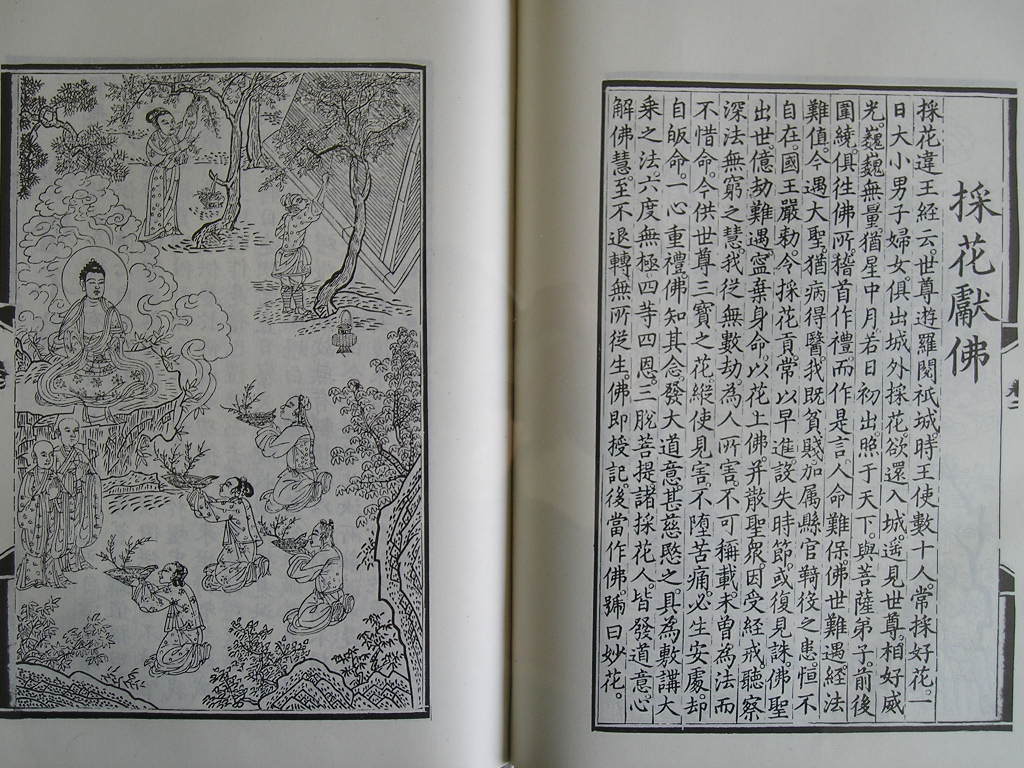 採花獻佛
採花違王經云。世尊遊羅閱祇城。時王使數十人。常採好花。一
日大小男子婦女俱出城外採花。欲還入城。遙見世尊。相好威
光。巍巍無量。猶星中月。若日初出照于天下。與菩薩弟子。前後
圍繞。俱往佛所。稽首作禮。而作是言。人命難保。佛世難遇。經法
難值。今遇大聖。猶病得醫。我既貧賤。加属縣官。鞫役之患。恒不
自在。國王嚴勅。令採花貢。常以早進。設失時節。或復見誅。佛聖
出世。億劫難遇。寧棄身命。以花上佛。并散聖眾。因受經戒。聽察
深法無窮之慧。我從無數劫。為人所害。不可稱載。未曾為法而
不惜命。今供世尊三寶之花。縱使見害。不墮苦痛。必生安處。却
自皈命。一心重禮。佛知其念。發大道意。甚慈愍之。具為敷講大
乘之法。六度無極。四等四恩。三脫菩提。諸採花人。皆發道意。心
解佛慧。至不退轉。無所從生。佛即授記。後當作佛。號曰妙花。
卷二